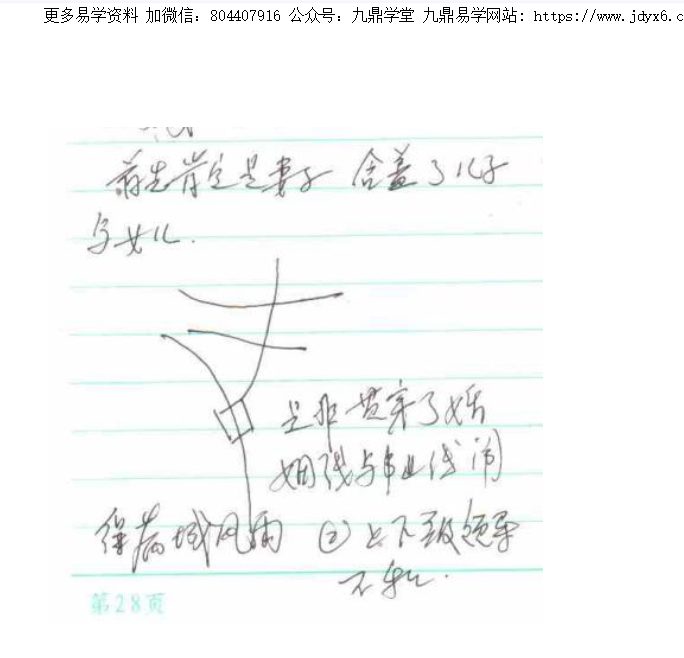 更多易学资料 加微信：804407916 公众号：九鼎学堂 九鼎易学网站：https://www.jdyx6.c
首先肯定是妻子 含盖了儿子
与女儿.
是非贯穿了婚
姻线与事业线 闹
得满城风雨 ② 上下级领导
不和.
第28页